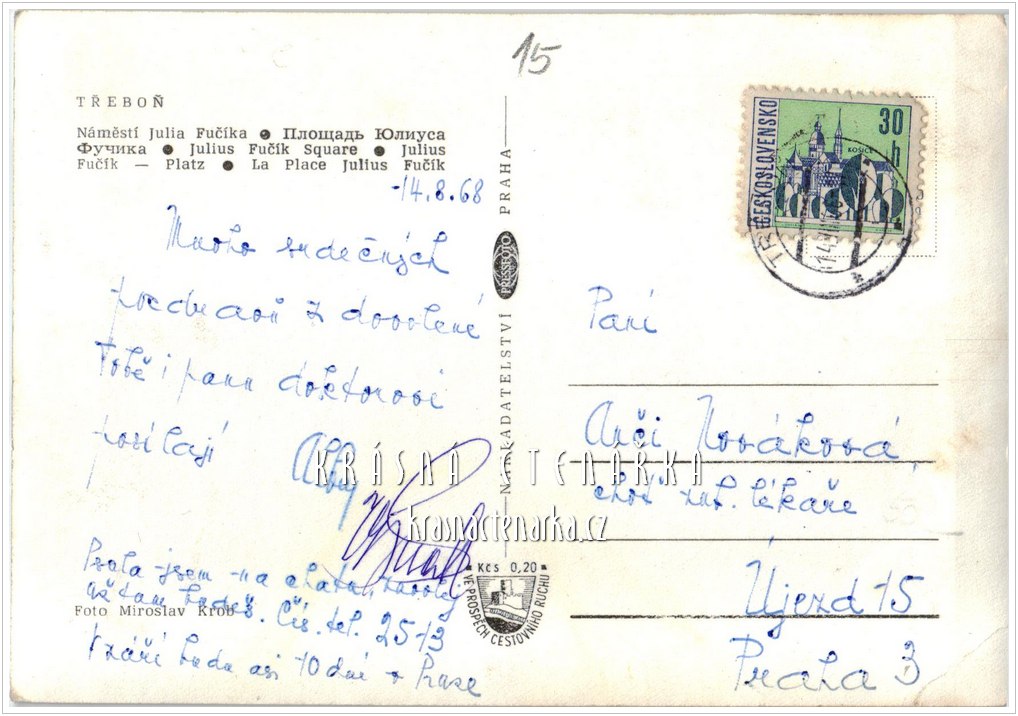 15
TŘEBOŇ
Náměstí Julia Fučíka ● Площадь Юлиуса
Фучика ● Julius Fučík Square ● Julius
Fučík — Platz ● La Place Julius Fučík
14.8.68
Mnoho srdečných
pozdravů z dovolené
Tobě i panu doktorovi
posílají
Psala jsem na chatu, zavolej
až tam budeš. Čís. tel. 25-13
V září budu asi 10 dní v Praze
Foto Miroslav Krob
NAKLADATELSTVÍ PRESSFOTO PRAHA
Kčs 0,20
VE PROSPĚCH CESTOVNÍHO RUCHU
ČESKOSLOVENSKO
30 h
KOŠICE
Paní
Anči Nováková
choť zub. lékaře
Újezd 15
Praha 3
KRÁSNÁ ČTENÁŘKA
krasnactenarka.cz